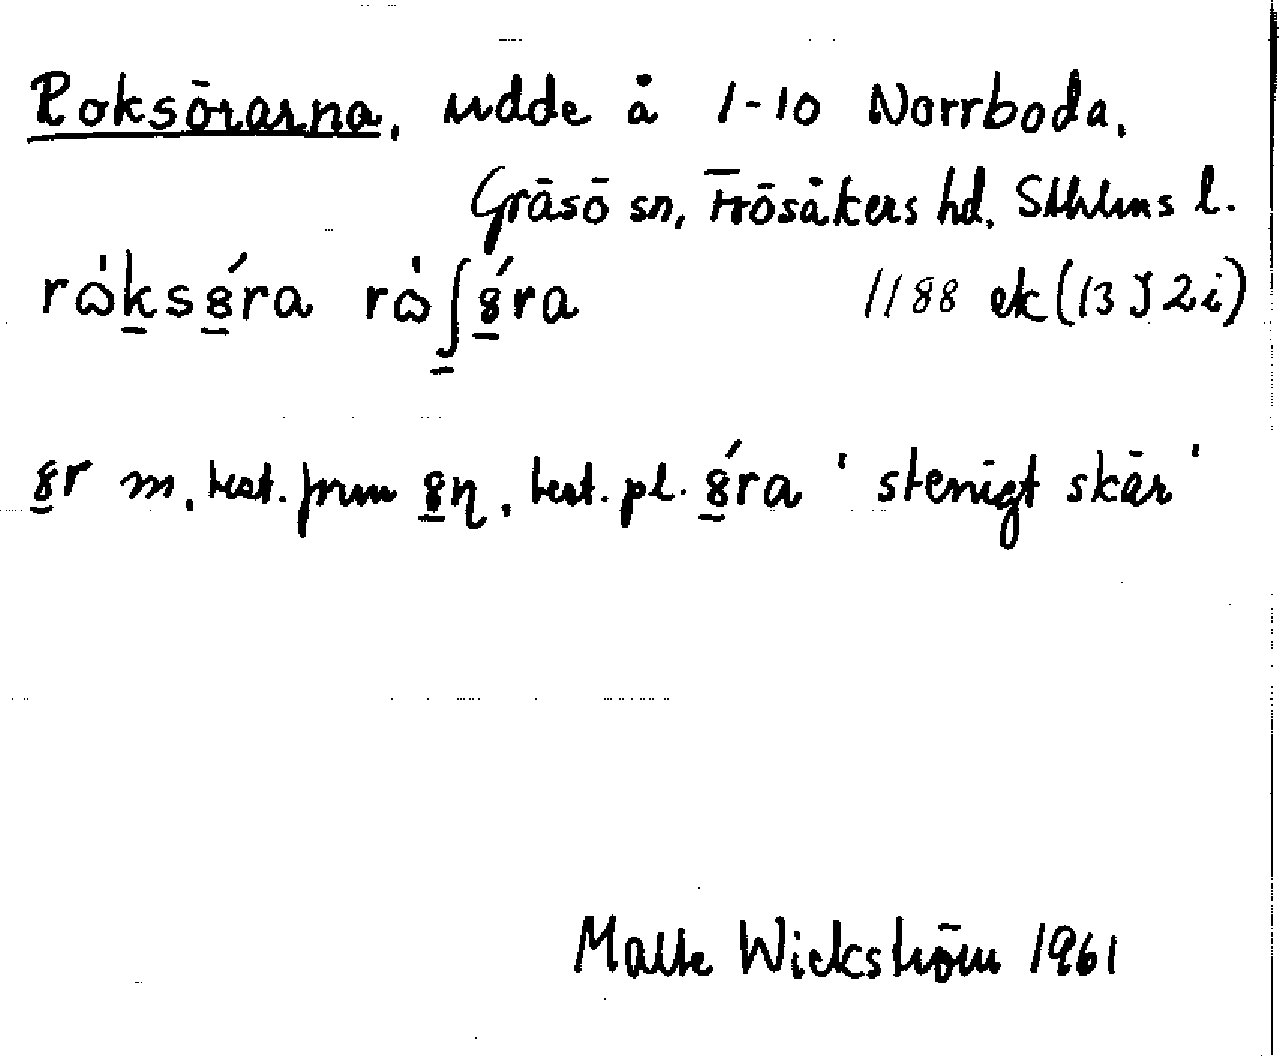 Roksörarna, udde å 1-10 Norrboda,
Gräsö sn, Frösåkers hd, Sthlms l.
rὼks8́ra rὼʃ8́ra 1188 ek (13 J 2 i)
8r m, best. form 8ɳ, best. pl. 8́ra ' stenigt skär '
Malte Wickström 1961